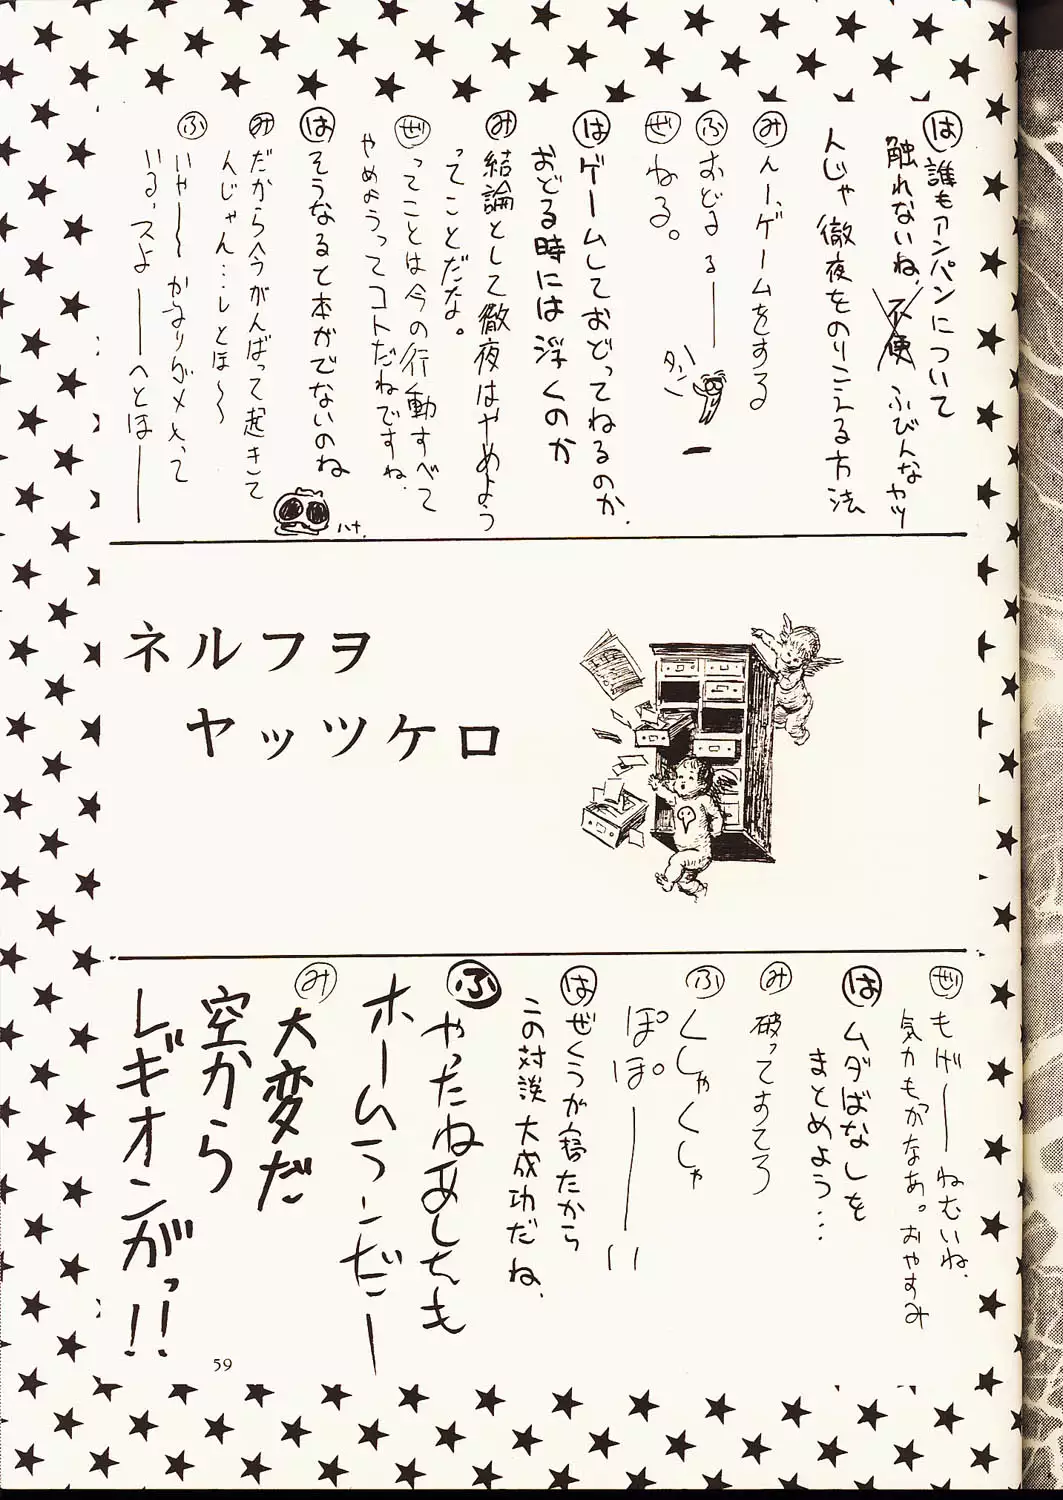 は 誰もアンパンについて
触れないね、不便 ふびんなヤツ
人じゃ徹夜をのりこえる方法
み んー、ゲームをする
ふ おどるー
タンッ
ぜ ねる。
は ゲームしておどってねるのか、
おどる時には浮くのか
み 結論として徹夜はやめよう
ってことだな。
ぜ ってことは今の行動すべて
やめようってコトだねですね、
は そうなると本がでないのね
ハナ、
み だから今がんばって起きて
んじゃん…しとほ〜
ふ いや〜〜かなりダメ入って
いる、スよ——へとほ——
ネルフヲ
ヤッツケロ
ぜ もげ——ねむいね、
気力もつかなあ。おやすみ
は ムダばなしを
まとめよう…
み 破ってすてろ
ふ くしゃくしゃ
ぽぽ——い
は ぜくうが寝たから
この対談大成功だね、
ふ やったねあしたも
ホームランだー
み 大変だ
空から
レギオンがっ!!
59